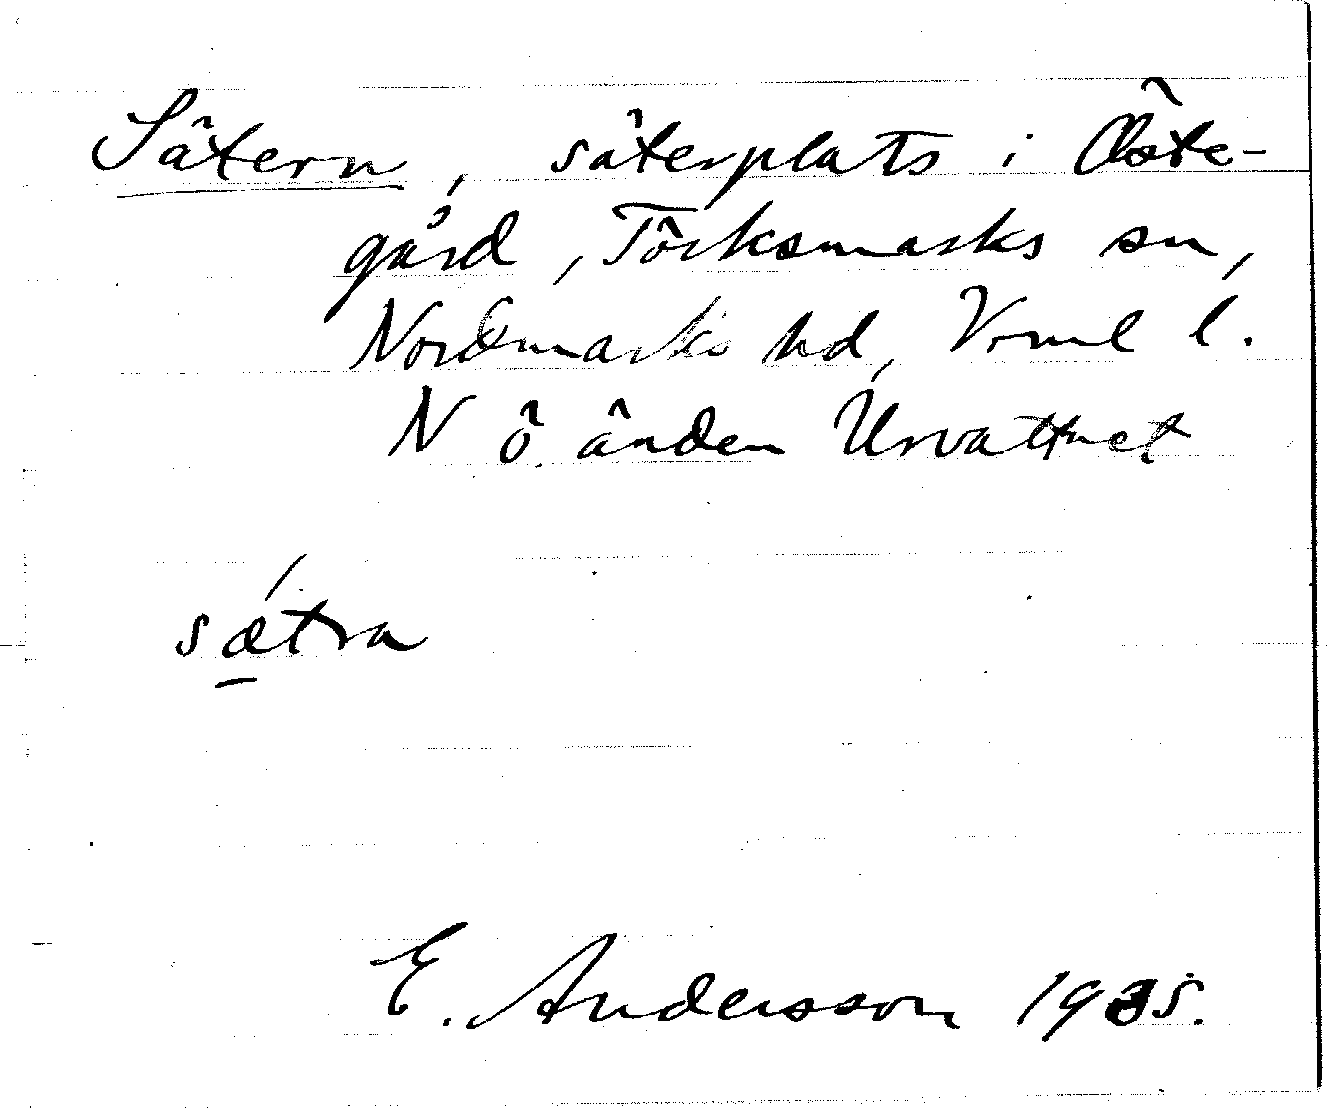 Sätern, säterplats i Öste-
gård, Törksmarks sn,
Nordmarks hd, Vrml l.
N ö änden Urvattnet
sǽtra
E. Andersson 1935.